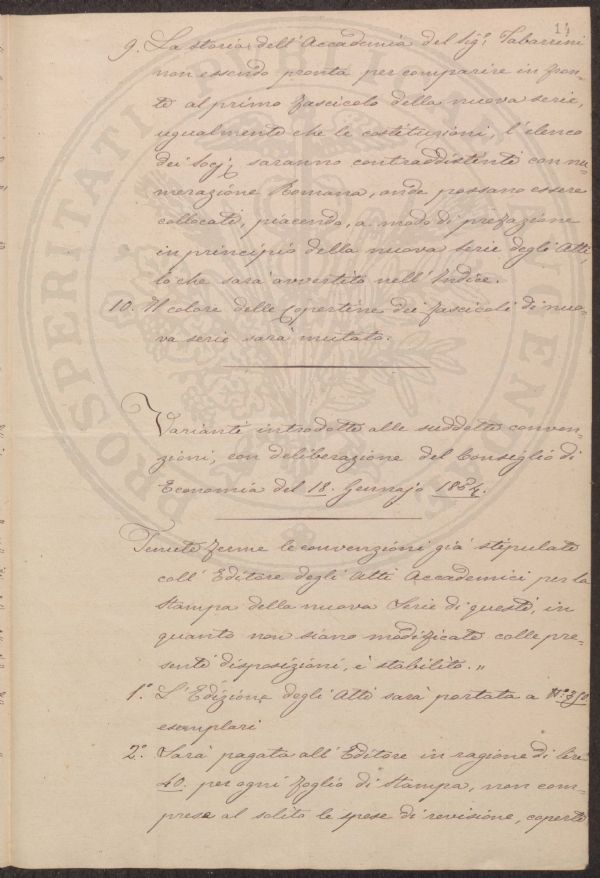 14
9. La storia dell'Accademia del Sig.r Tabarrini
non essendo pronta per comparire in fron-
te al primo fascicolo della nuova serie,
ugualmente che le costituzioni, l'elenco
dei Socj, saranno contraddistinti con nu-
merazione Romana, onde possano essere
collocati, piacendo, a modo di prefazione
in principio della nuova serie degli Atti,
lo che sarà avvertito nell'Indice.
10. Il colore delle Copertine dei fascicoli di nuo-
va serie sarà mutato.
Varianti introdotte alle suddette conven-
zioni, con deliberazione del Consiglio di
Economia del 18. Gennajo 1854.
Tenute ferme le convenzioni già stipulate
coll'Editore degli Atti Accademici per la
Stampa della nuova Serie di questi, in
quanto non siano modificate colle pre-
senti disposizioni, è stabilito. „
1.° L'Edizione degli Atti sarà portata a N.° 350
esemplari
2.° Sarà pagata all'Editore in ragione di lire
40. per ogni foglio di Stampa, non com-
prese al solito le spese di revisione, coperte
PROSPERITATI PUBLICAE AUGENDAE